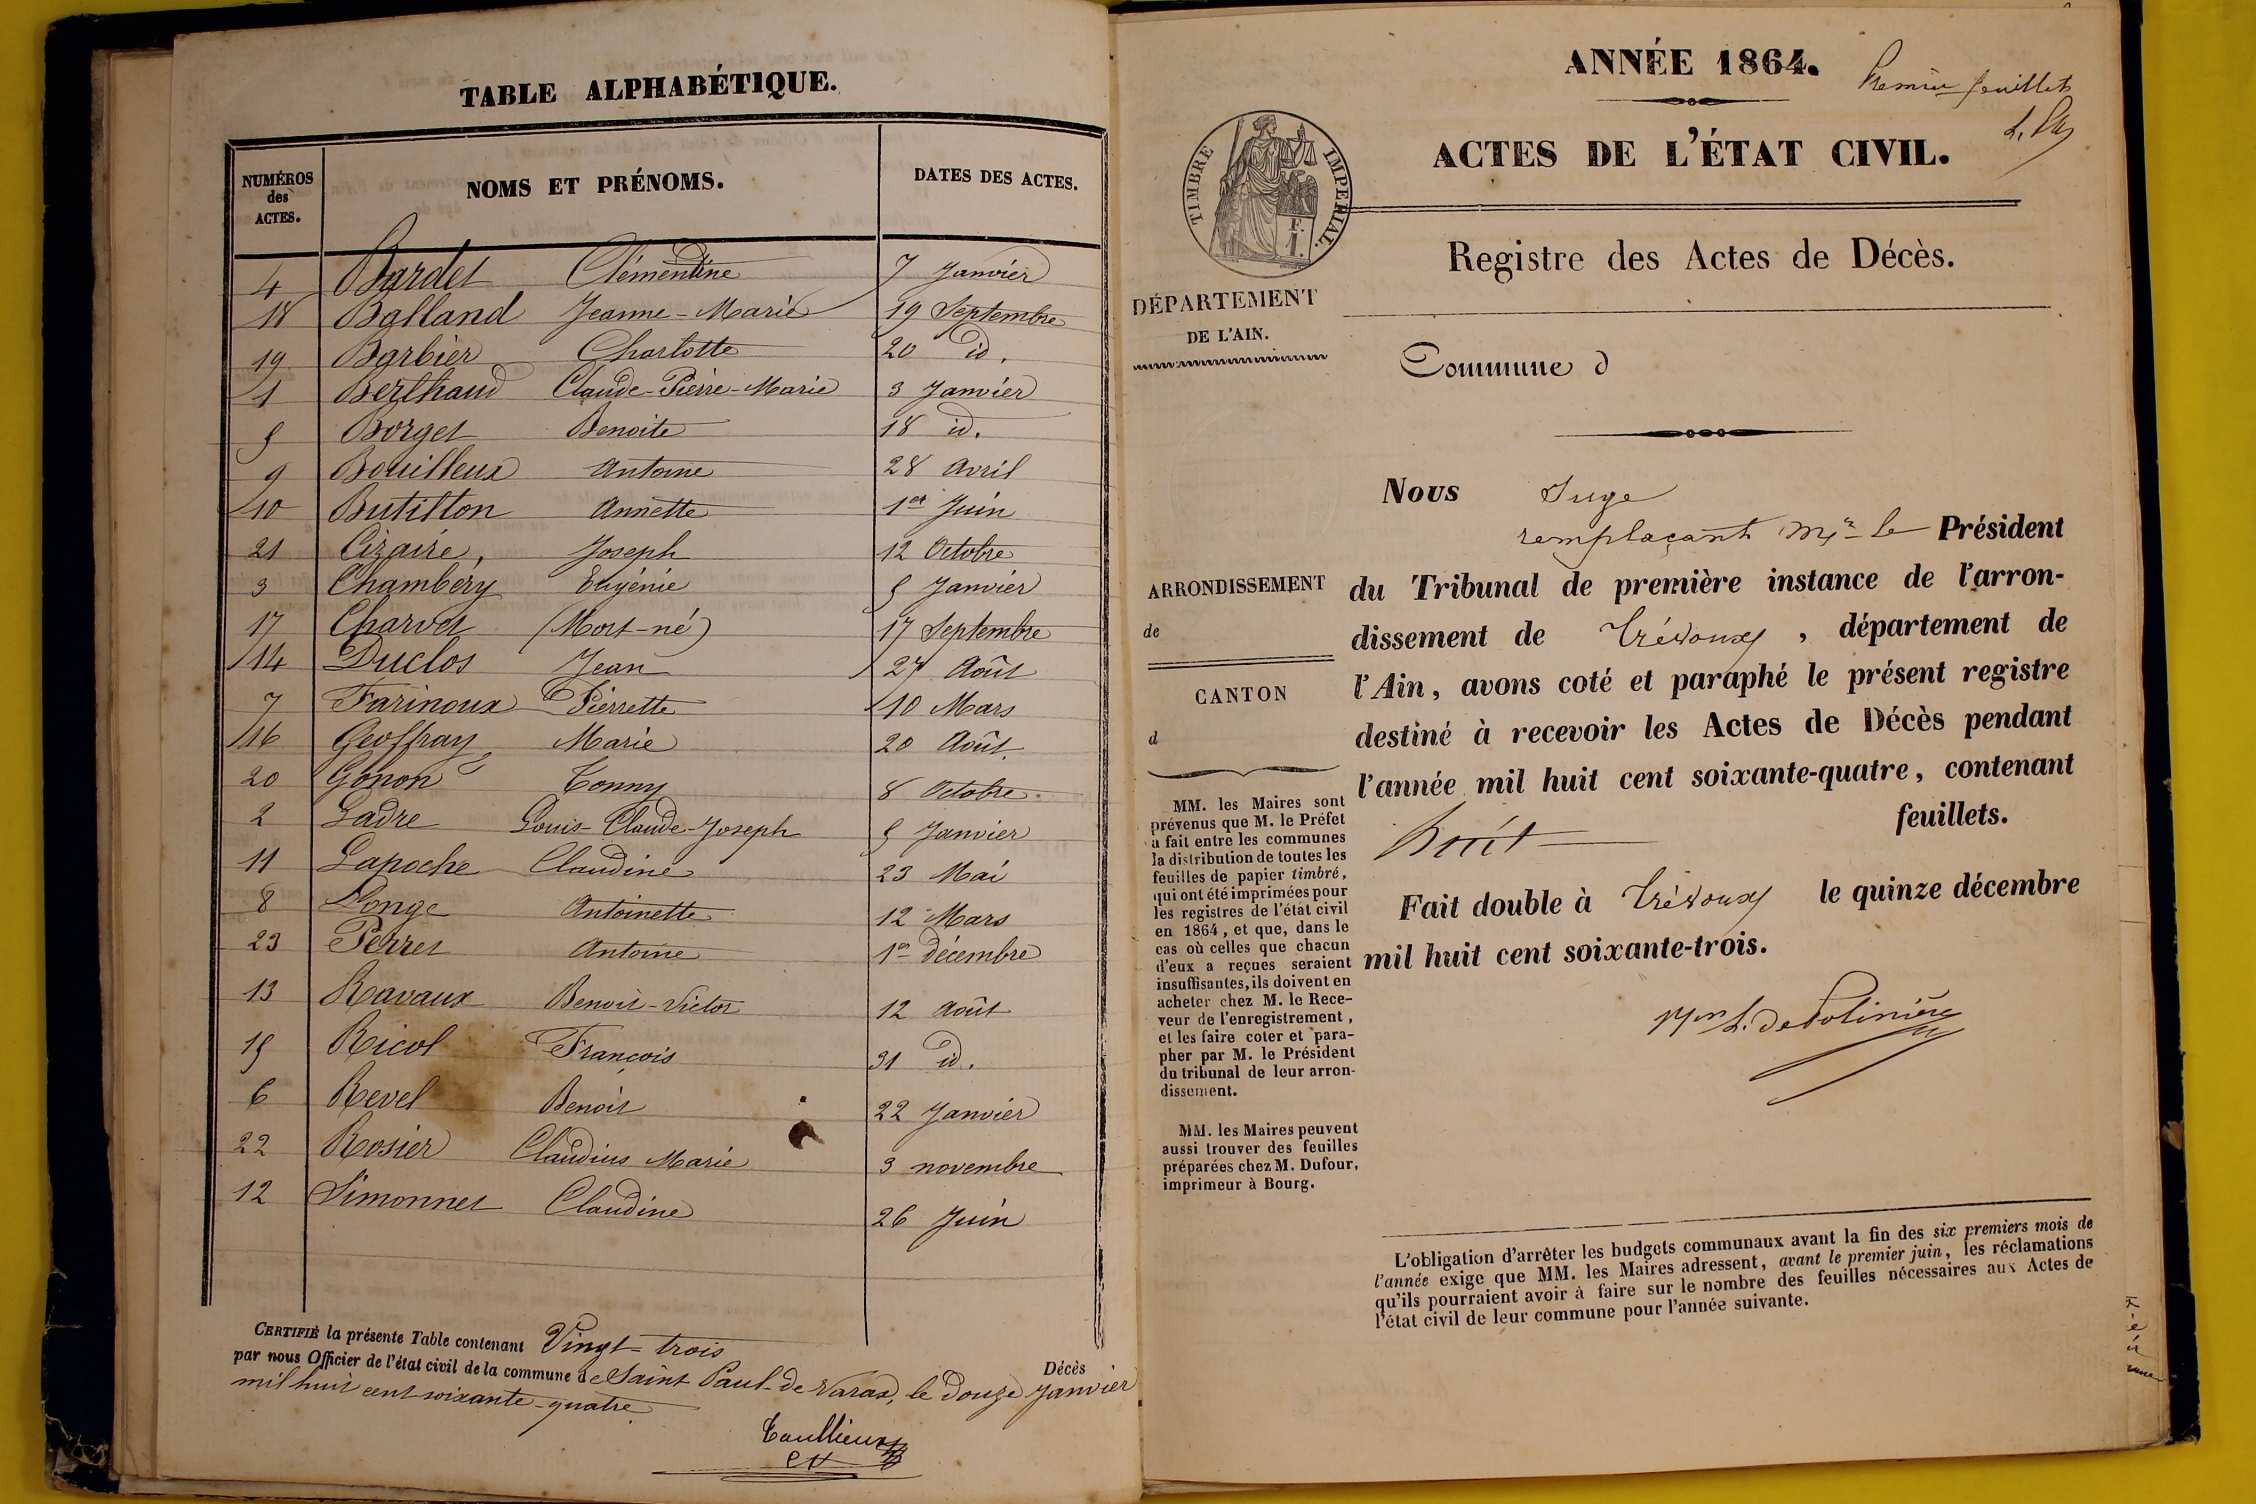 TABLE ALPHABÉTIQUE.
NUMÉROS des ACTES. NOMS ET PRÉNOMS. DATES DES ACTES.
4 Bardet Clémentine 7 Janvier
18 Balland Jeanne-Marie 19 Septembre
19 Barbier Charlotte 20 id.
1 Berthaud Claude-Pierre-Marie 3 Janvier
5 Borget Benoite 18 id.
9 Bouilleux Antoine 28 Avril
10 Butillon Annette 1er Juin
21 Cizaire, Joseph 12 Octobre
3 Chambéry Eugénie 5 Janvier
17 Charvet (Mort-né) 17 Septembre
14 Duclos Jean 27 Août
7 Farinoux Pierrette 10 Mars
16 Geoffray Marie 20 Août
20 Gonon Tonny 8 Octobre
2 Ladre Louis-Claude-Joseph 5 Janvier
11 Lapoche Claudine 23 Mai
8 Longe Antoinette 12 Mars
23 Perret Antoine 1er décembre
13 Ravaux Benoit-Victor 12 Août
15 Ricol François 31 id.
6 Revel Benoit 22 Janvier
22 Rosier Claudius Marie 3 novembre
12 Simonnet Claudine 26 Juin
CERTIFIÉ la présente Table contenant Vingt-trois Décès
par nous Officier de l'état civil de la commune de Saint Paul-de Varax, le douze Janvier
mil huit cent soixante-quatre.
ANNÉE 1864.
Premier feuillet
ACTES DE L'ÉTAT CIVIL.
TIMBRE IMPERIAL.
Registre des Actes de Décès.
DÉPARTEMENT
DE L'AIN.
Commune d
Nous Juge
remplaçant Mr le Président
ARRONDISSEMENT
de
CANTON
d
du Tribunal de première instance de l'arron-
dissement de Trévoux, département de
l'Ain, avons coté et paraphé le présent registre
destiné à recevoir les Actes de Décès pendant
l'année mil huit cent soixante-quatre, contenant
huit feuillets.
Fait double à Trévoux le quinze décembre
mil huit cent soixante-trois.
de Polinière
MM. les Maires sont
prévenus que M. le Préfet
a fait entre les communes
la distribution de toutes les
feuilles de papier timbré,
qui ont été imprimées pour
les registres de l'état civil
en 1864, et que, dans le
cas où celles que chacun
d'eux a reçues seraient
insuffisantes, ils doivent en
acheter chez M. le Rece-
veur de l'enregistrement,
et les faire coter et para-
pher par M. le Président
du tribunal de leur arron-
dissement.
MM. les Maires peuvent
aussi trouver des feuilles
préparées chez M. Dufour,
imprimeur à Bourg.
L'obligation d'arrêter les budgets communaux avant la fin des six premiers mois de
l'année exige que MM. les Maires adressent, avant le premier juin, les réclamations
qu'ils pourraient avoir à faire sur le nombre des feuilles nécessaires aux Actes de
l'état civil de leur commune pour l'année suivante.